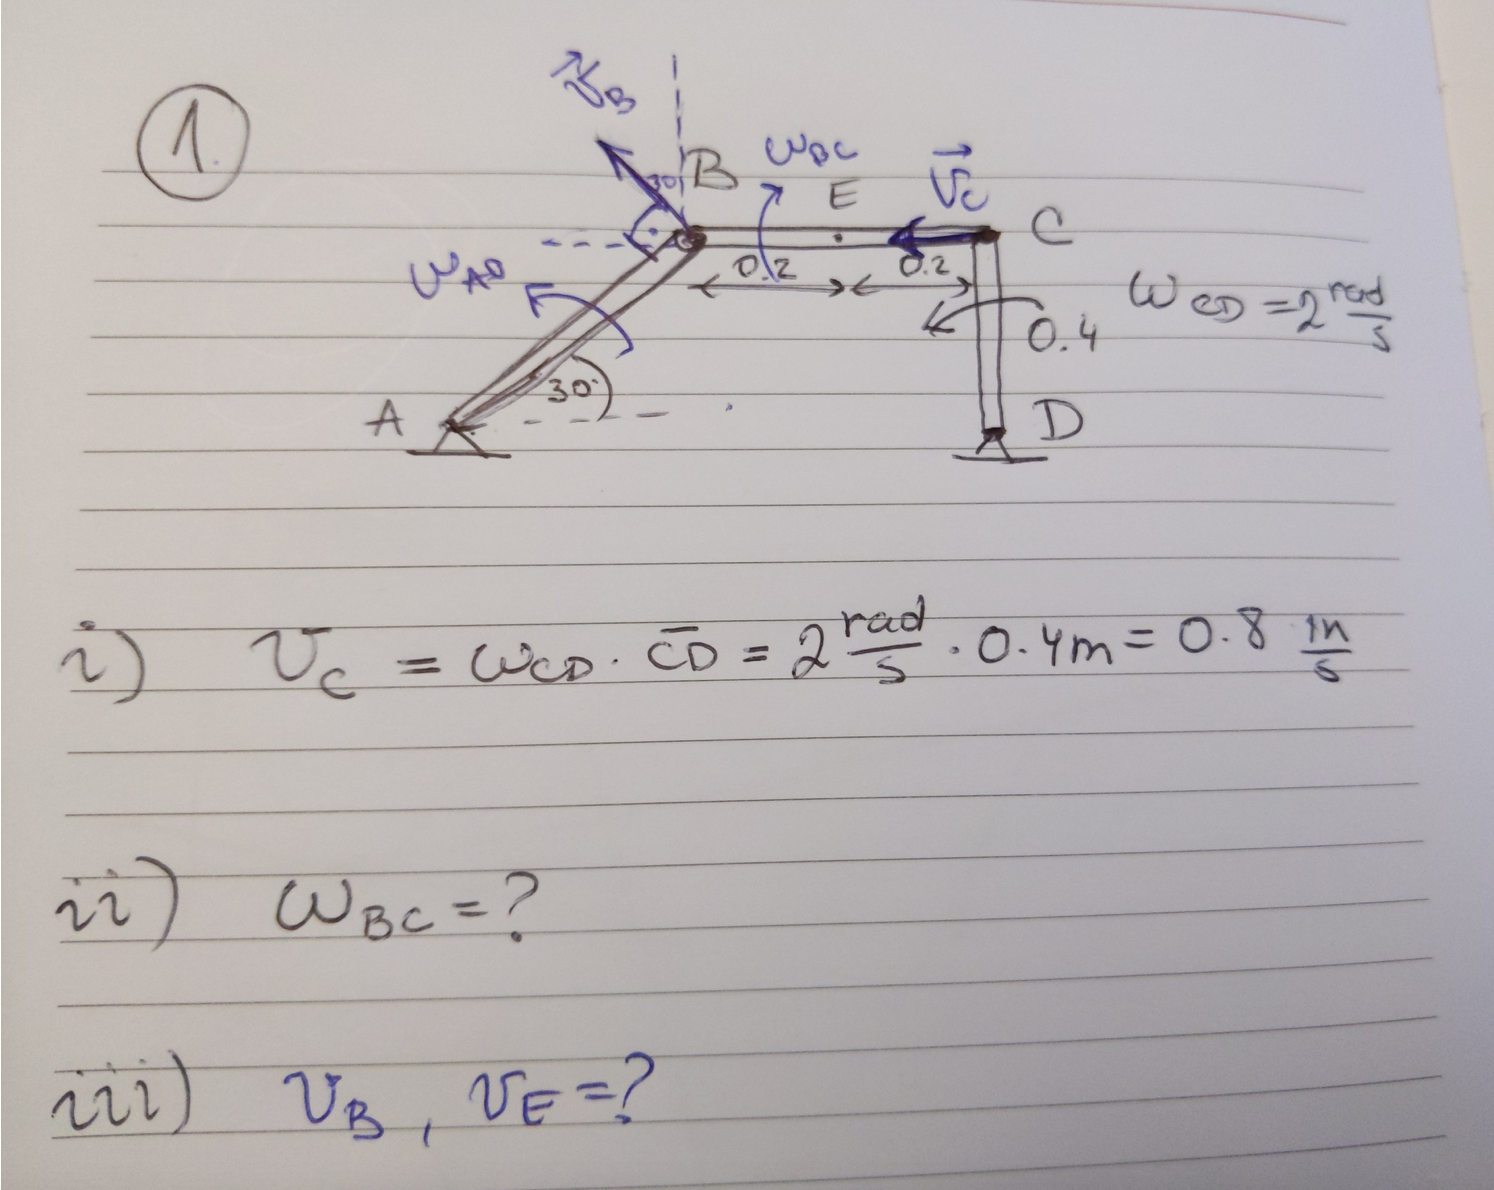 1.
v⃗_B
30°
B
ω_BC
E
v⃗_C
C
0.2
0.2
ω_CD = 2 rad/s
0.4
30°
A
D
i) v_C = ω_CD · C̅D̅ = 2 rad/s · 0.4m = 0.8 m/s
ii) ω_BC = ?
iii) v_B, v_E = ?